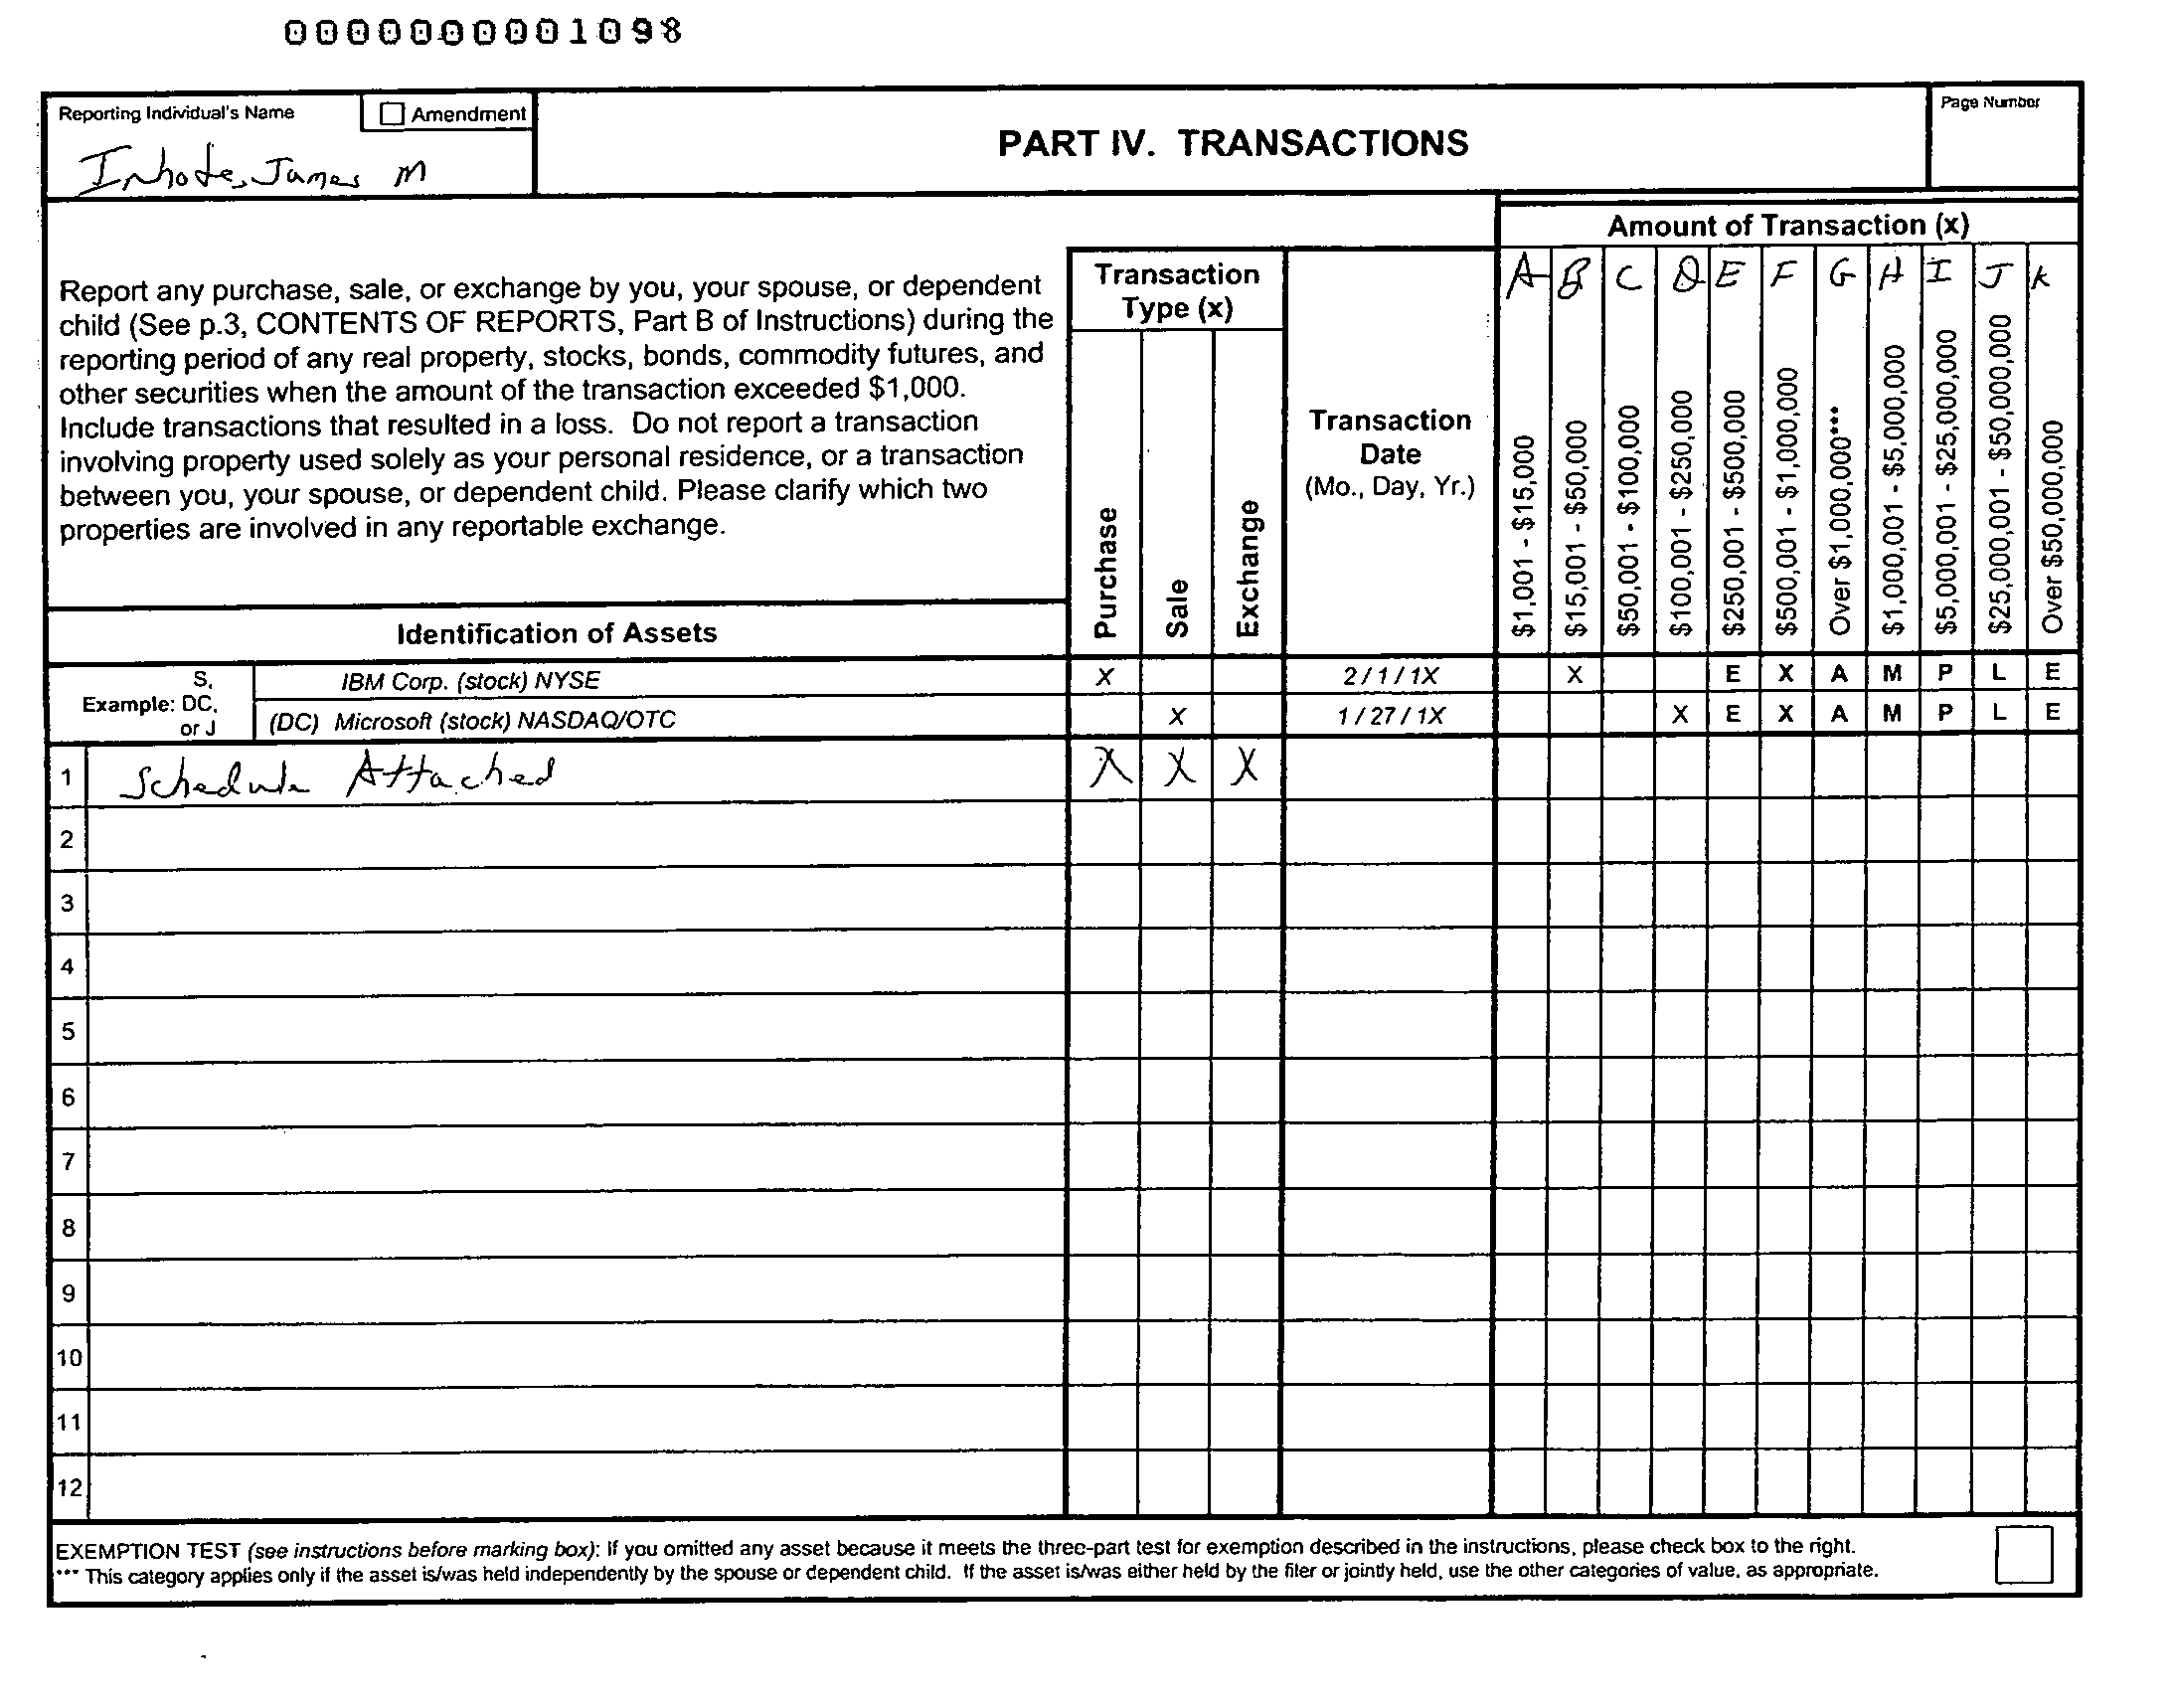 0000000001098
Reporting Individual's Name
Amendment
Inhofe, James M
PART IV. TRANSACTIONS
Page Number
Report any purchase, sale, or exchange by you, your spouse, or dependent
child (See p.3, CONTENTS OF REPORTS, Part B of Instructions) during the
reporting period of any real property, stocks, bonds, commodity futures, and
other securities when the amount of the transaction exceeded $1,000.
Include transactions that resulted in a loss. Do not report a transaction
involving property used solely as your personal residence, or a transaction
between you, your spouse, or dependent child. Please clarify which two
properties are involved in any reportable exchange.
Identification of Assets
Transaction
Type (x)
Purchase
Sale
Exchange
Transaction
Date
(Mo., Day, Yr.)
Amount of Transaction (x)
A B C D E F G H I J K
$1,001 - $15,000
$15,001 - $50,000
$50,001 - $100,000
$100,001 - $250,000
$250,001 - $500,000
$500,001 - $1,000,000
Over $1,000,000***
$1,000,001 - $5,000,000
$5,000,001 - $25,000,000
$25,000,001 - $50,000,000
Over $50,000,000
Example: S, DC, or J
IBM Corp. (stock) NYSE X 2 / 1 / 1X X E X A M P L E
(DC) Microsoft (stock) NASDAQ/OTC X 1 / 27 / 1X X E X A M P L E
1 Schedule Attached X X X
2
3
4
5
6
7
8
9
10
11
12
EXEMPTION TEST (see instructions before marking box): If you omitted any asset because it meets the three-part test for exemption described in the instructions, please check box to the right.
*** This category applies only if the asset is/was held independently by the spouse or dependent child. If the asset is/was either held by the filer or jointly held, use the other categories of value, as appropriate.